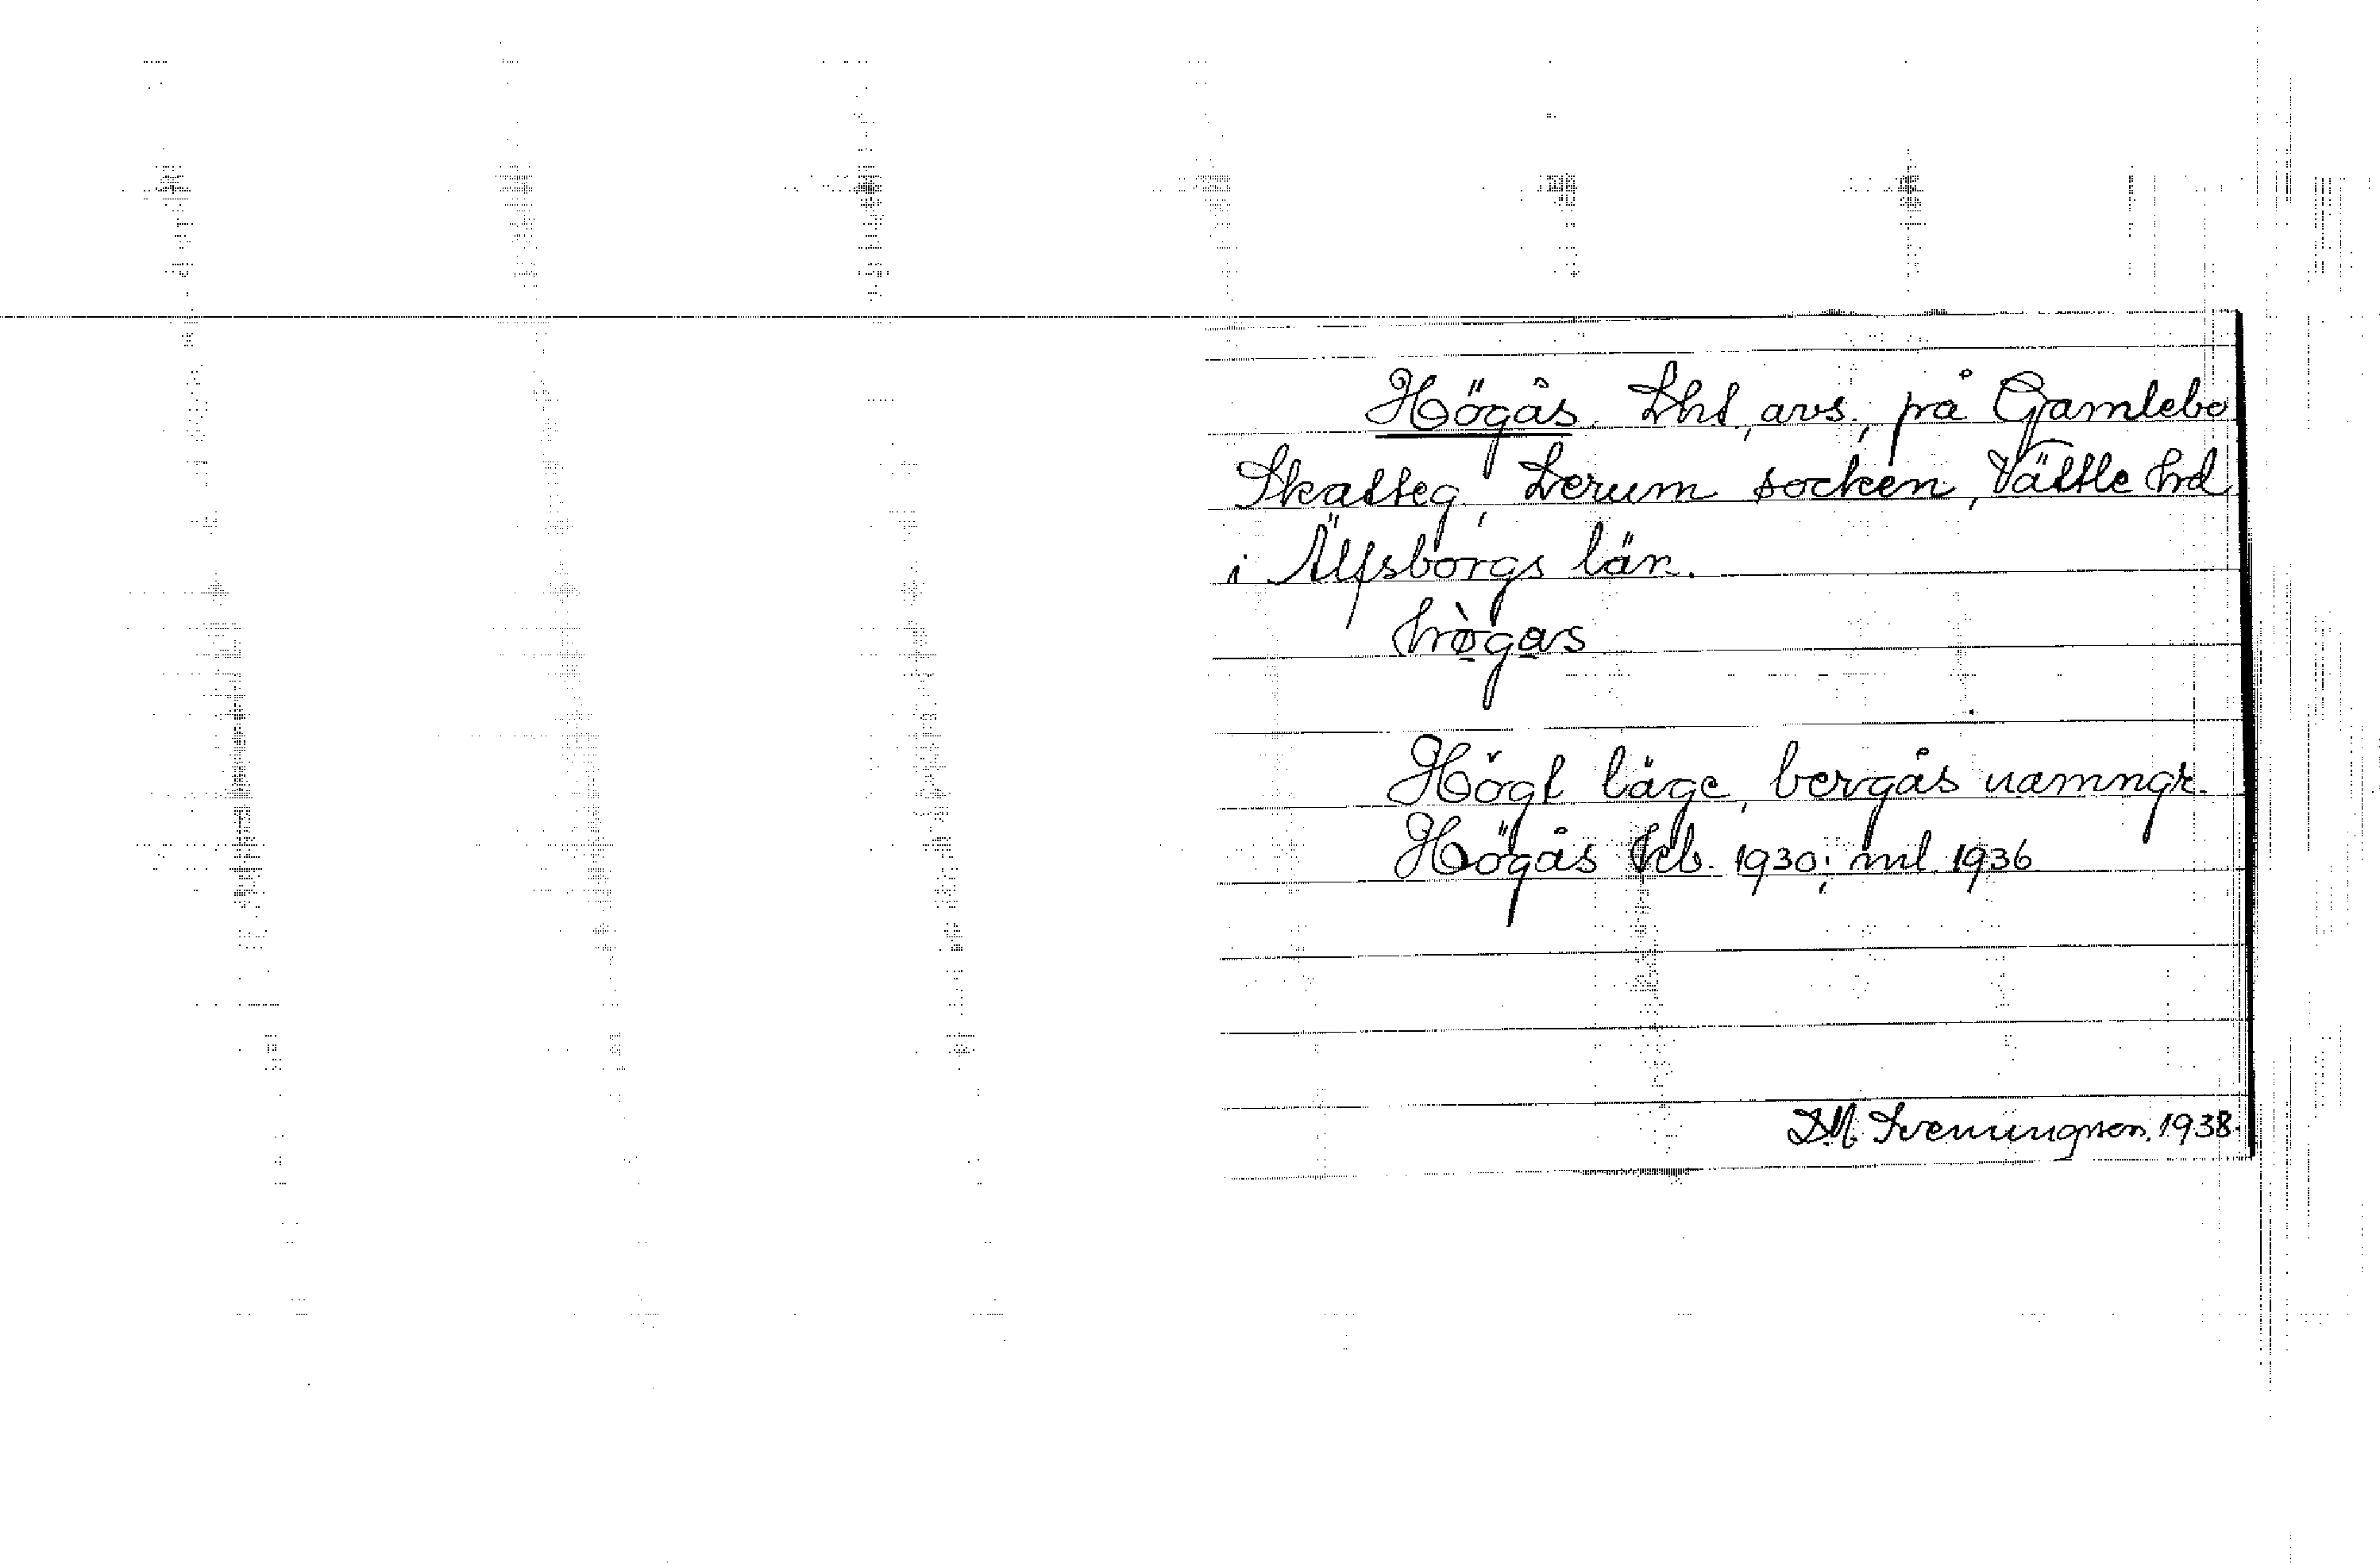 Högås. Lht, avs., på Gamlebo
Skatteg., Lerum socken, Vättle hd
i Älfsborgs län.
hø̀gas
Högt läge, bergås namngr.
Högås kb. 1930; ml. 1936
D.M. Sveningson, 1938.